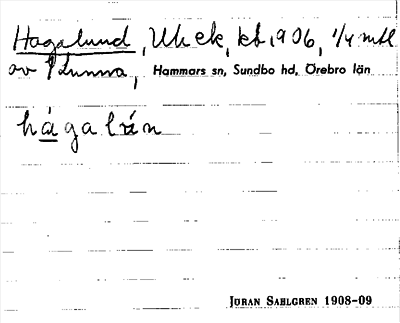 Hagalund, Uh ek, kb 1906, 1/4 mtl
av Lunna, Hammars sn, Sundbo hd, Örebro län
hágalún
JÖRAN SAHLGREN 1908-09